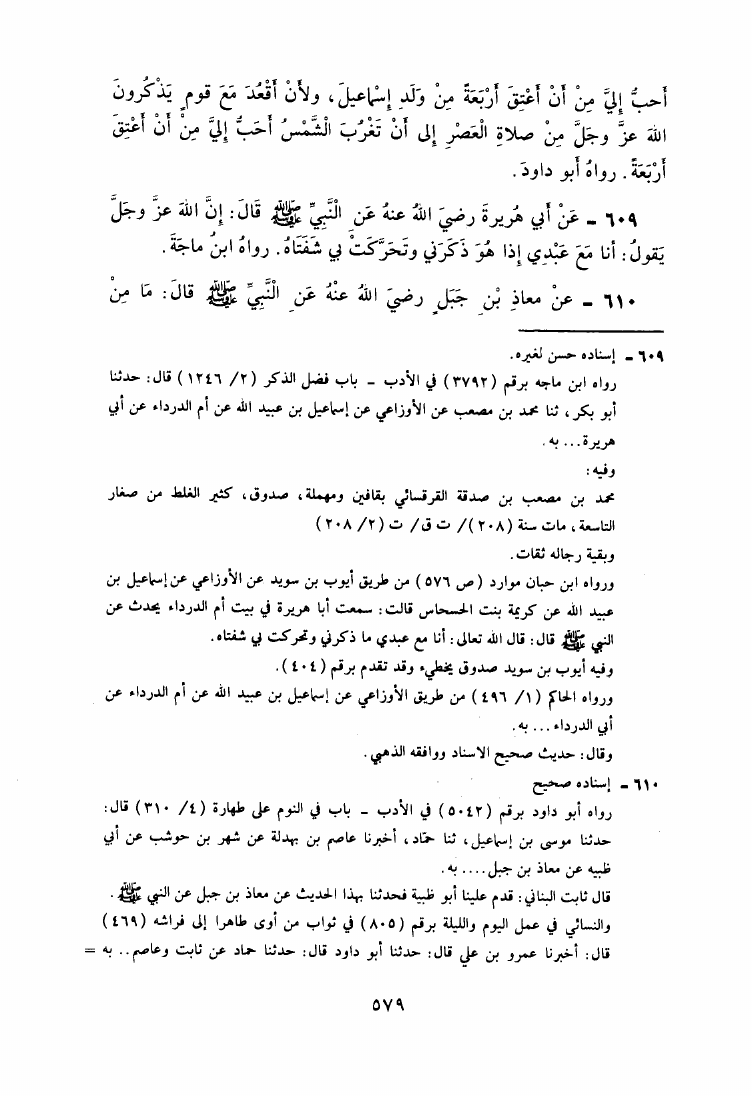 أَحبُّ إِليَّ مِنْ أَنْ أَعْتِقَ أَرْبَعَةً مِنْ وَلَدِ إِسْماعيلَ، ولأَنْ أَقْعُدَ مَعَ قومٍ يَذْكُرونَ
اللهَ عزَّ وجَلَّ مِنْ صلاةِ العَصْرِ إلى أَنْ تَغْرُبَ الْشَّمْسُ أَحَبُّ إِليَّ مِنْ أَنْ أَعْتِقَ
أَرْبَعَةً. رواهُ أبو داودَ.
٦٠٩ ـ عَنْ أبي هُريرةَ رضيَ اللهُ عنهُ عَنِ الْنَّبيِّ ﷺ قَالَ: إِنَّ اللهَ عزَّ وجَلَّ
يَقولُ: أنا مَعَ عَبْدِي إِذا هُوَ ذَكَرَني وتَحَرَّكَتْ بي شَفَتَاهُ. رواهُ ابنُ ماجَةَ.
٦١٠ ـ عنْ معاذِ بْنِ جَبَلٍ رضيَ اللهُ عَنْهُ عَنِ الْنَّبيِّ ﷺ قالَ: مَا مِنْ
٦٠٩ ـ إسناده حسن لغيره.
رواه ابن ماجه برقم (٣٧٩٢) في الأدب ـ باب فضل الذكر (٢/ ١٢٤٦) قال: حدثنا
أبو بكر، ثنا محمد بن مصعب عن الأوزاعي عن إسماعيل بن عبيد الله عن أم الدرداء عن أبي
هريرة... به.
وفيه:
محمد بن مصعب بن صدقة القرقسائي بقافين ومهملة، صدوق، كثير الغلط من صغار
التاسعة، مات سنة (٢٠٨)/ ت ق/ ت (٢/ ٢٠٨)
وبقية رجاله ثقات.
ورواه ابن حبان موارد (ص ٥٧٦) من طريق أيوب بن سويد عن الأوزاعي عن إسماعيل بن
عبيد الله عن كريمة بنت الحسحاس قالت: سمعت أبا هريرة في بيت أم الدرداء يحدث عن
النبي ﷺ قال: قال الله تعالى: أنا مع عبدي ما ذكرني وتحركت بي شفتاه.
وفيه أيوب بن سويد صدوق يخطيء وقد تقدم برقم (٤٠٤).
ورواه الحاكم (١/ ٤٩٦) من طريق الأوزاعي عن إسماعيل بن عبيد الله عن أم الدرداء عن
أبي الدرداء... به.
وقال: حديث صحيح الاسناد ووافقه الذهبي.
٦١٠ ـ إسناده صحيح
رواه أبو داود برقم (٥٠٤٢) في الأدب ـ باب في النوم على طهارة (٤/ ٣١٠) قال:
حدثنا موسى بن إسماعيل، ثنا حمّاد، أخبرنا عاصم بن بهدلة عن شهر بن حوشب عن أبي
ظبيه عن معاذ بن جبل.... به.
قال ثابت البناني: قدم علينا أبو ظبية فحدثنا بهذا الحديث عن معاذ بن جبل عن النبي ﷺ.
والنسائي في عمل اليوم والليلة برقم (٨٠٥) في ثواب من أوى طاهرا إلى فراشه (٤٦٩)
قال: أخبرنا عمرو بن علي قال: حدثنا أبو داود قال: حدثنا حماد عن ثابت وعاصم.. به =
٥٧٩